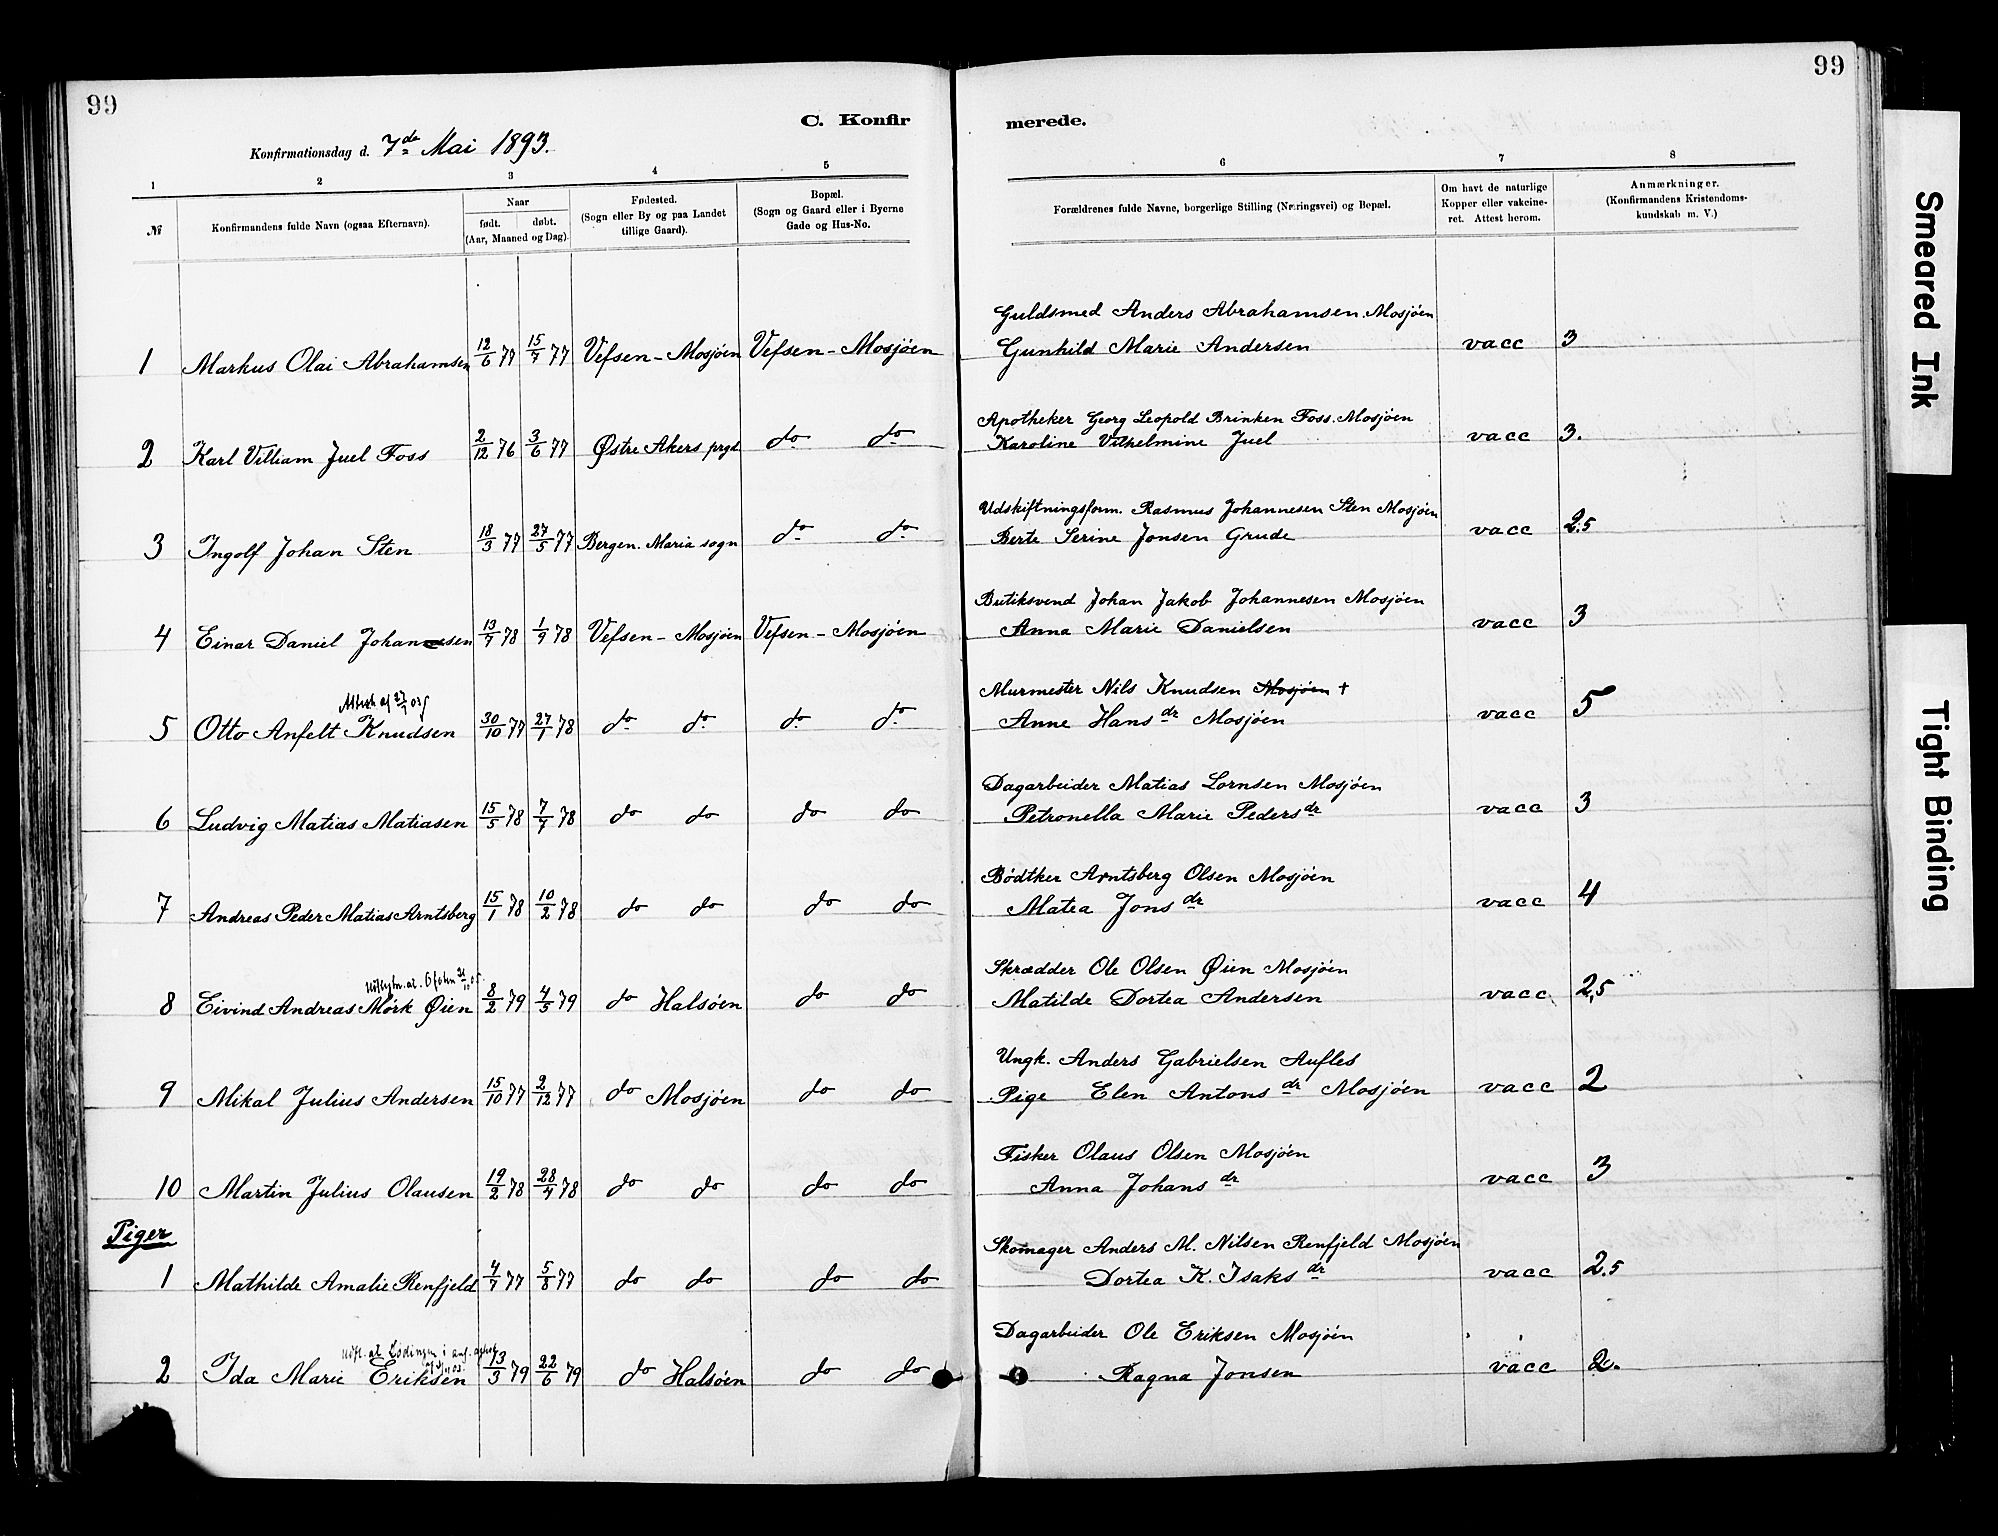 99
99
C. Konfir merede.
Konfirmationsdag d. 7de Mai 1893.
1 2 3 4 5 6 7 8
№ Konfirmandens fulde Navn (ogsaa Efternavn). Naar født. døbt. (Aar, Maaned og Dag). Fødested. (Sogn eller By og paa Landet tillige Gaard). Bopæl. (Sogn og Gaard eller i Byerne Gade og Hus-No. Forældrenes fulde Navne, borgerlige Stilling (Næringsvei) og Bopæl. Om havt de naturlige Kopper eller vakcineret. Attest herom. Anmærkninger. (Konfirmandens Kristendomskundskab m. V.)
Guldsmed Anders Abrahamsen. Mosjöen
1 Markus Olai Abrahamsen 12/6 77 15/7 77 Vefsen - Mosjöen Vefsen - Mosjöen Gunhild Marie Andersen vacc 3
Apotheker Georg Leopold Brinken Foss. Mosjöen
2 Karl Villiam Juel Foss 2/12 76 3/6 77 Østre Akers prgd do do Karoline Vilhelmine Juel vacc 3.
Udskiftningsform. Rasmus Johannesen Sten Mosjöen
3 Ingolf Johan Sten 18/3 77 27/5 77 Bergen. Maria sogn do do Berte Serine Jonsen Grude vacc 2.5
Butiksvend Johan Jakob Johannesen Mosjöen
4 Einar Daniel Johannesen 13/7 78 1/9 78 Vefsen - Mosjöen Vefsen - Mosjöen Anna Marie Danielsen vacc 3
Murmester Nils Knudsen Mosjöen +
5 Otto Anfelt Knudsen 30/10 77 27/1 78 do do do do Anne Hansdr Mosjöen vacc 5
Dagarbeider Matias Lornsen Mosjöen
6 Ludvig Matias Matiasen 15/5 78 7/7 78 do do do do Petronella Marie Pedersdr vacc 3
Bödtker Arntsberg Olsen Mosjöen
7 Andreas Peder Matias Arntsberg 15/1 78 10/2 78 do do do do Matea Jonsdr vacc 4
Skrædder Ole Olsen Øien Mosjöen
8 Eivind Andreas Mörk Øien 8/2 79 4/5 79 do Halsöen do do Matilde Dortea Andersen vacc 2,5
Ungk. Anders Gabrielsen Aufles
9 Mikal Julius Andersen 15/10 77 2/12 77 do Mosjöen do do Pige Elen Antonsdr Mosjöen vacc 2
Fisker Olaus Olsen Mosjöen
10 Martin Julius Olausen 19/2 78 28/4 78 do do do do Anna Johansdr vacc 3
Piger
Skomager Anders M. Nilsen Renfjeld Mosjöen
1 Mathilde Amalie Renfjeld 4/7 77 5/8 77 do do do do Dortea K. Isaksdr vacc 2.5
Dagarbeider Ole Eriksen Mosjöen
2 Ida Marie Eriksen 13/3 79 22/6 79 do Halsöen do do Ragna Jonsen vacc 2.
Smeared Ink
Tight Binding